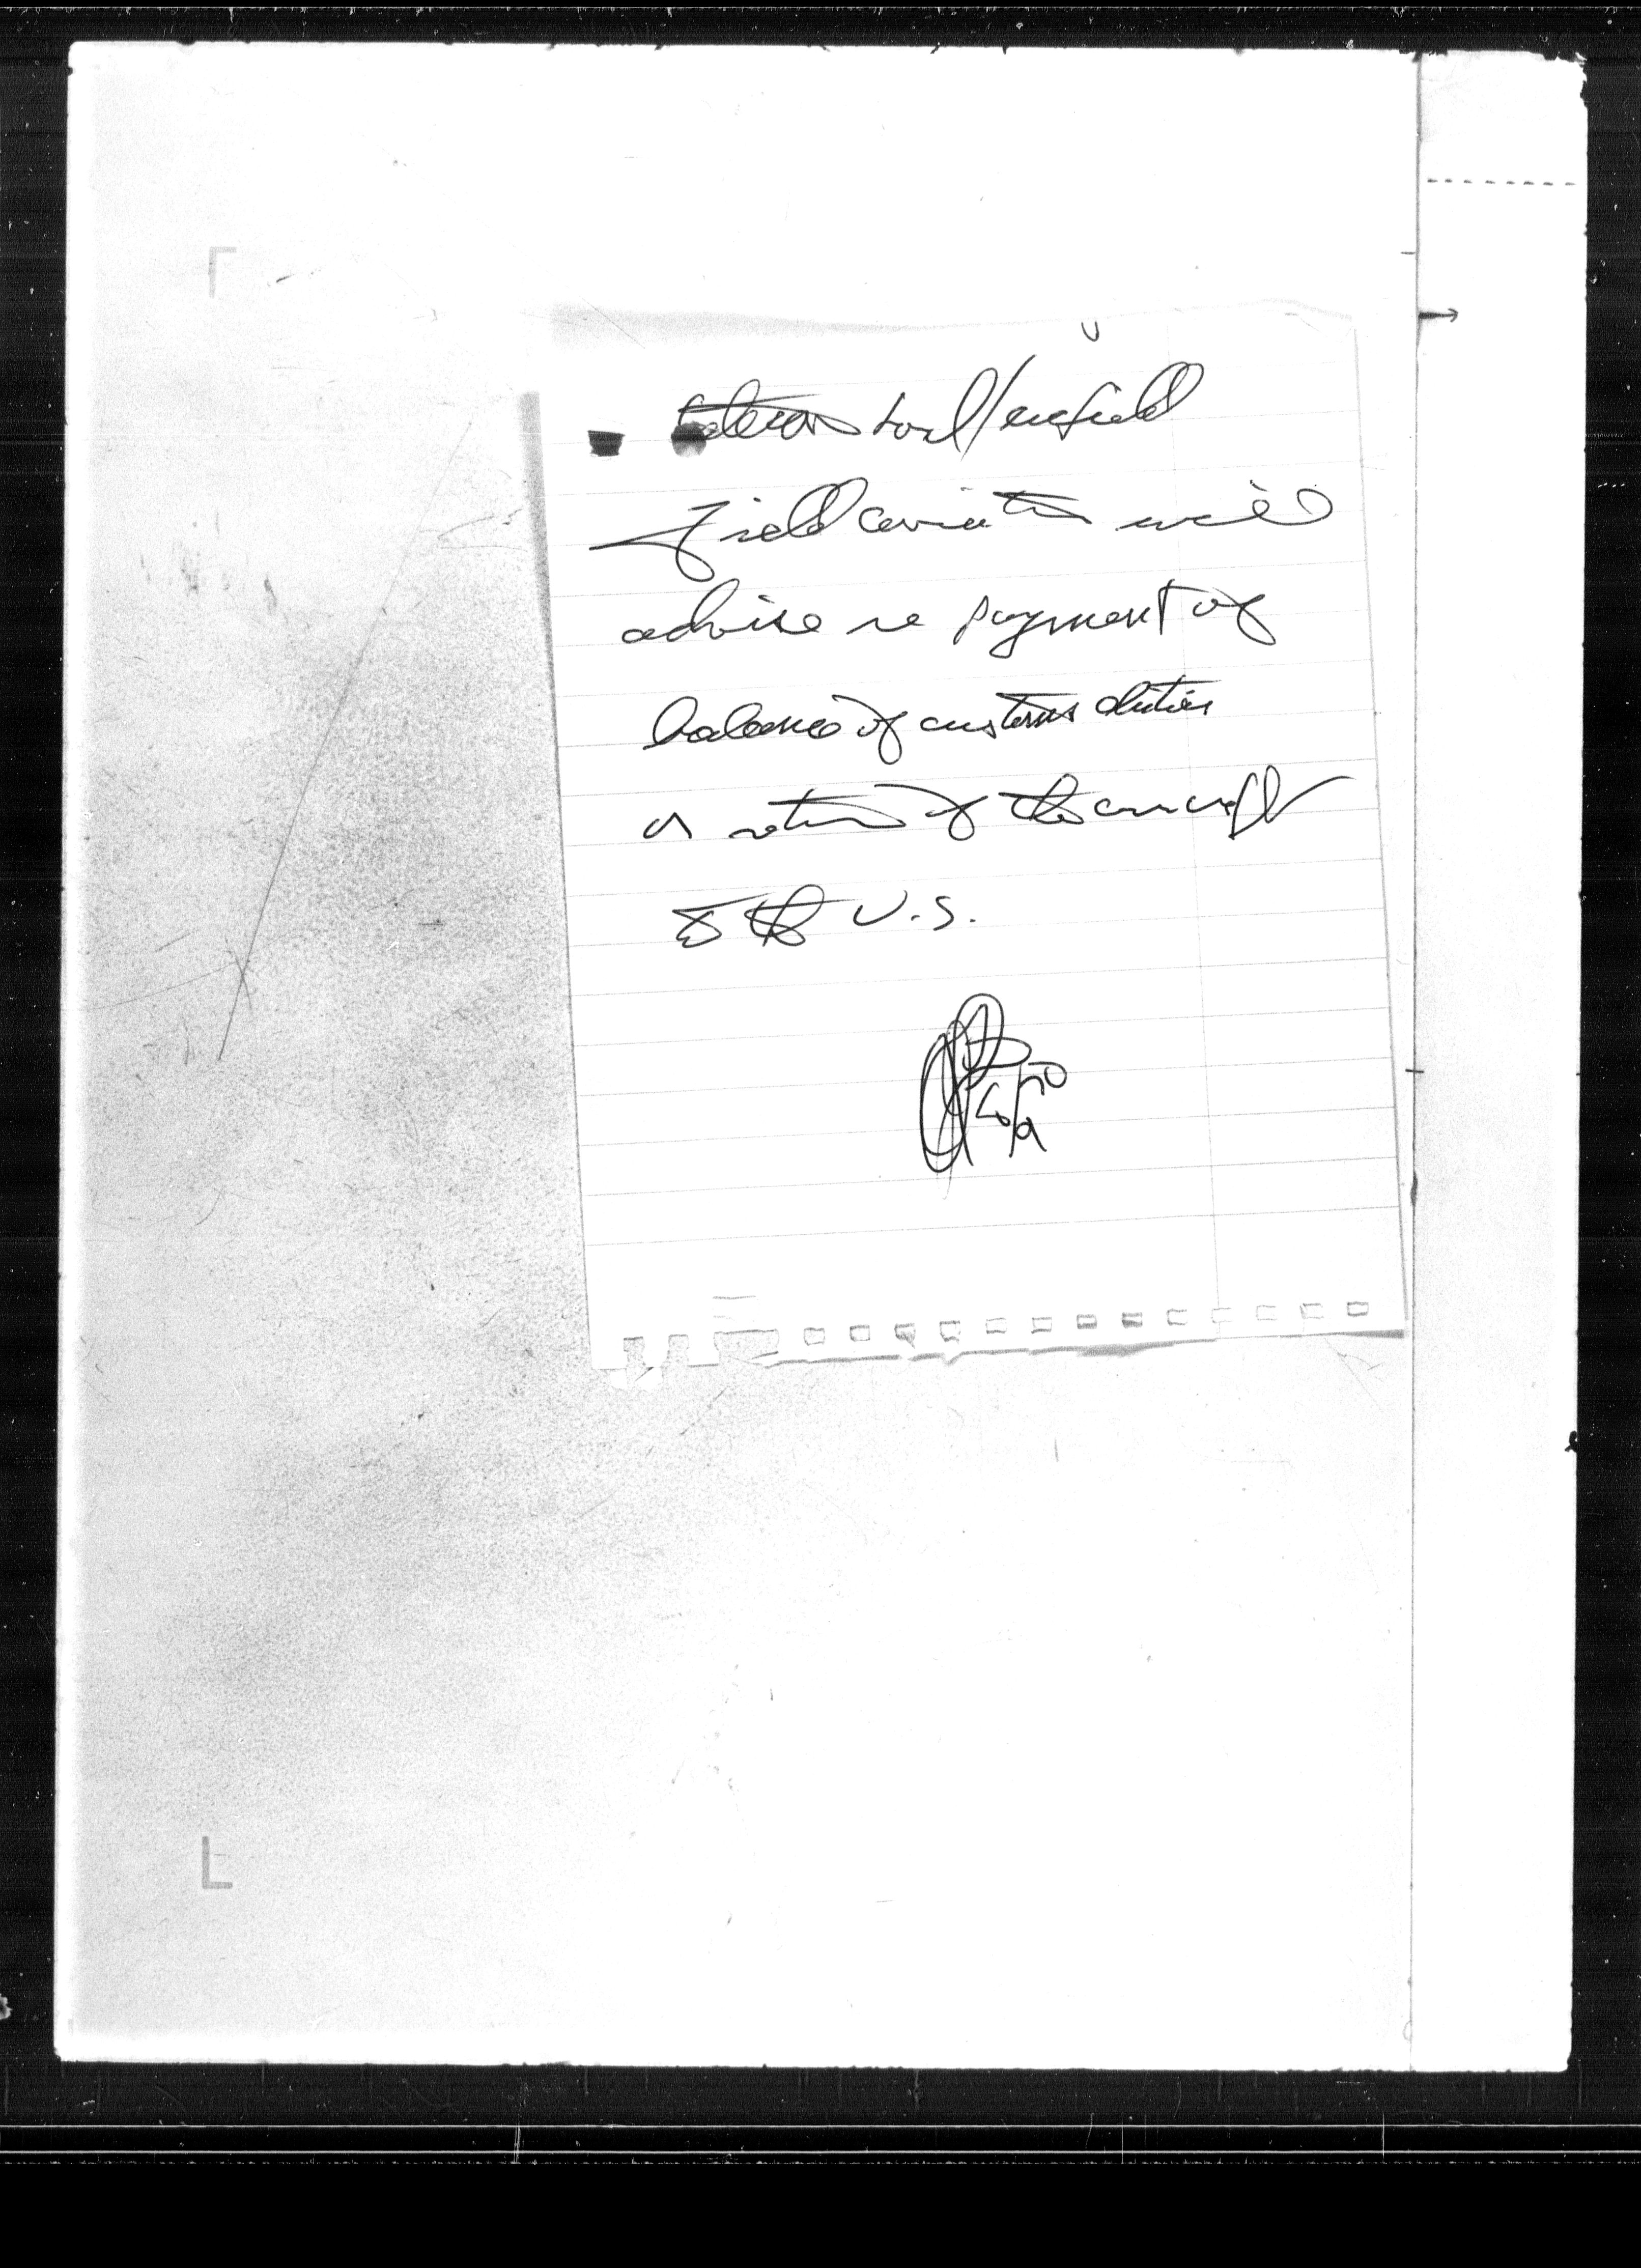 enfield
field aviation will
advise re payment of
balance of customs duties
or return of the aircraft
to the U.S.